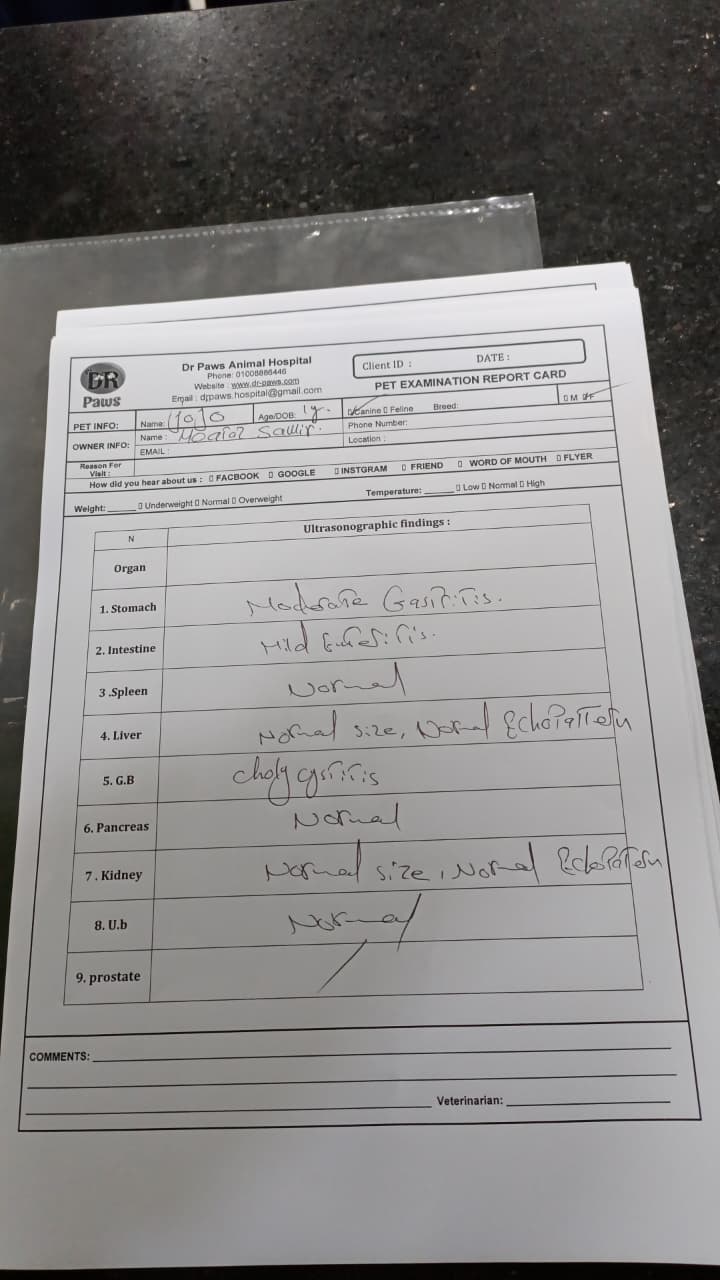 DR
Paws
Dr Paws Animal Hospital
Phone: 01008886446
Website : www.dr-paws.com
Email : drpaws.hospital@gmail.com
Client ID :
DATE :
PET EXAMINATION REPORT CARD
PET INFO:
Name: Yojo
Age/DOB: 1y.
Canine Feline
Breed:
M F
OWNER INFO:
Name : Samir.
Phone Number:
EMAIL :
Location :
Reason For Visit :
How did you hear about us : FACBOOK GOOGLE INSTGRAM FRIEND WORD OF MOUTH FLYER
Weight: Underweight Normal Overweight
Temperature: Low Normal High
N
Ultrasonographic findings :
Organ
1. Stomach Moderate Gastritis.
2. Intestine Mild Enteritis.
3 .Spleen Normal
4. Liver Normal size, Normal Echopattern
5. G.B Cholycystitis
6. Pancreas Normal
7 . Kidney Normal size, Normal Echopattern
8. U.b Normal
9. prostate
COMMENTS:
Veterinarian: